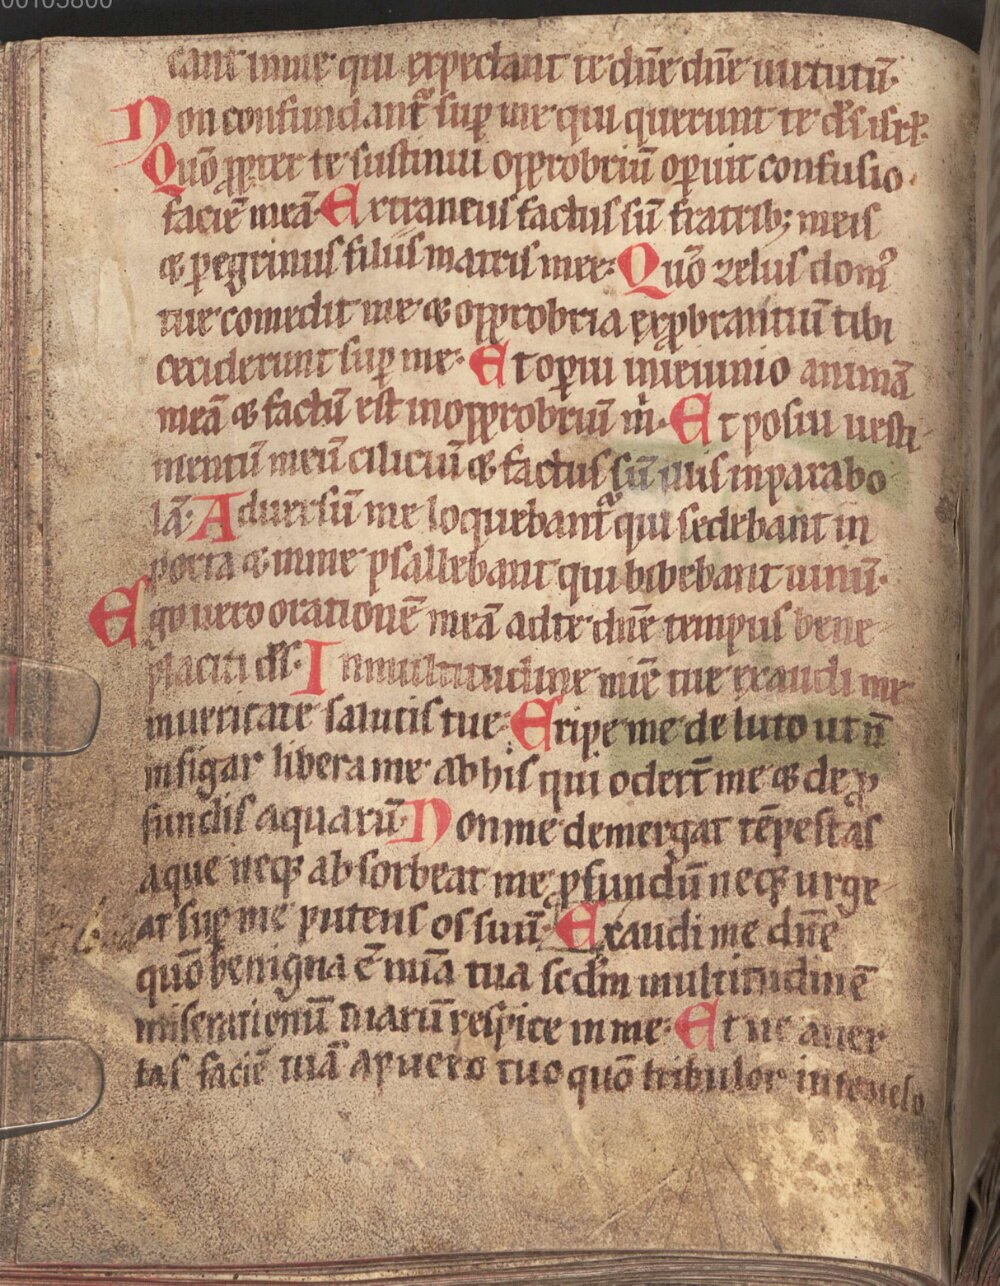 00105800
cant inme qui expectant te dn̄e dn̄e uirtutū.
Non confundant᷑ sup̱ me qui querunt te ds̄ isrl̄.
Quō ꝓpter te sustinui opꝓbriū op̱uit confusio
faciē meā. Extraneus factus sū fratrib; meis
⁊ p̱egrinus filiis matris mee. Quō zelus domꝰ
tue comedit me ⁊ opꝓbria exp̱brantiū tibi
ceciderunt sup̱ me. Et op̱ui inieiunio animā
meā ⁊ factū est inopꝓbriū m̄. Et posui uesti
mentū meū ciliciū ⁊ factus sū illis inparabo
lā. Aduersū me loquebant᷑ qui sedebant in
porta ⁊ inme psallebant qui bibebant uinū.
Ego uero orationē meā adte dn̄e tempus bene
placiti ds̄. Inmultitudine mīe tue exaudi me
inueritate salutis tue. Eripe me de luto ut ñ
infigar libera me ab his qui oder̄t me ⁊ de ꝓ
fundis aquarū. Non me demergat tēpestas
aque neqꝫ absorbeat me ꝓfundū neqꝫ urge
at sup̱ me puteus os suū. Exaudi me dn̄e
quō benigna ē mīa tua scdm̄ multitudinē
miserationū tuarū respice in me. Et ne auer
tas faciē tuā apuero tuo quō tribulor